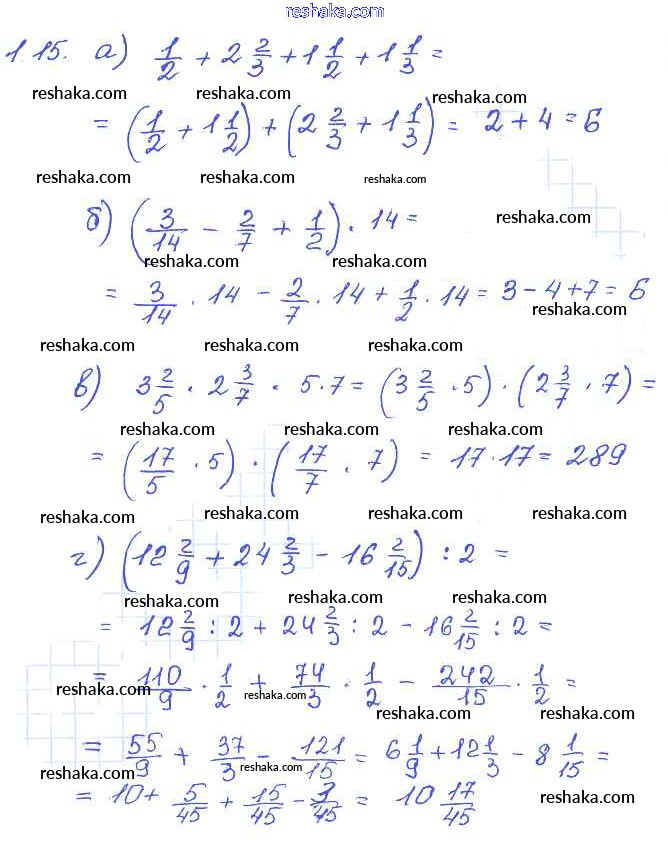 reshaka.com
1.15. а) 1/2 + 2 2/3 + 1 1/2 + 1 1/3 =
reshaka.com reshaka.com reshaka.com
= (1/2 + 1 1/2) + (2 2/3 + 1 1/3) = 2 + 4 = 6
reshaka.com reshaka.com reshaka.com
б) (3/14 - 2/7 + 1/2) · 14 =
reshaka.com
reshaka.com reshaka.com
= 3/14 · 14 - 2/7 · 14 + 1/2 · 14 = 3 - 4 + 7 = 6
reshaka.com
reshaka.com reshaka.com reshaka.com
в) 3 2/5 · 2 3/7 · 5 · 7 = (3 2/5 · 5) · (2 3/7 · 7) =
reshaka.com reshaka.com reshaka.com
= (17/5 · 5) · (17/7 · 7) = 17 · 17 = 289
reshaka.com reshaka.com reshaka.com reshaka.com
г) (12 2/9 + 24 2/3 - 16 2/15) : 2 =
reshaka.com reshaka.com reshaka.com
= 12 2/9 : 2 + 24 2/3 : 2 - 16 2/15 : 2 =
= 110/9 · 1/2 + 74/3 · 1/2 - 242/15 · 1/2 =
reshaka.com reshaka.com
reshaka.com reshaka.com
= 55/9 + 37/3 - 121/15 = 6 1/9 + 12 1/3 - 8 1/15 =
reshaka.com reshaka.com
= 10 + 5/45 + 15/45 - 3/45 = 10 17/45
reshaka.com